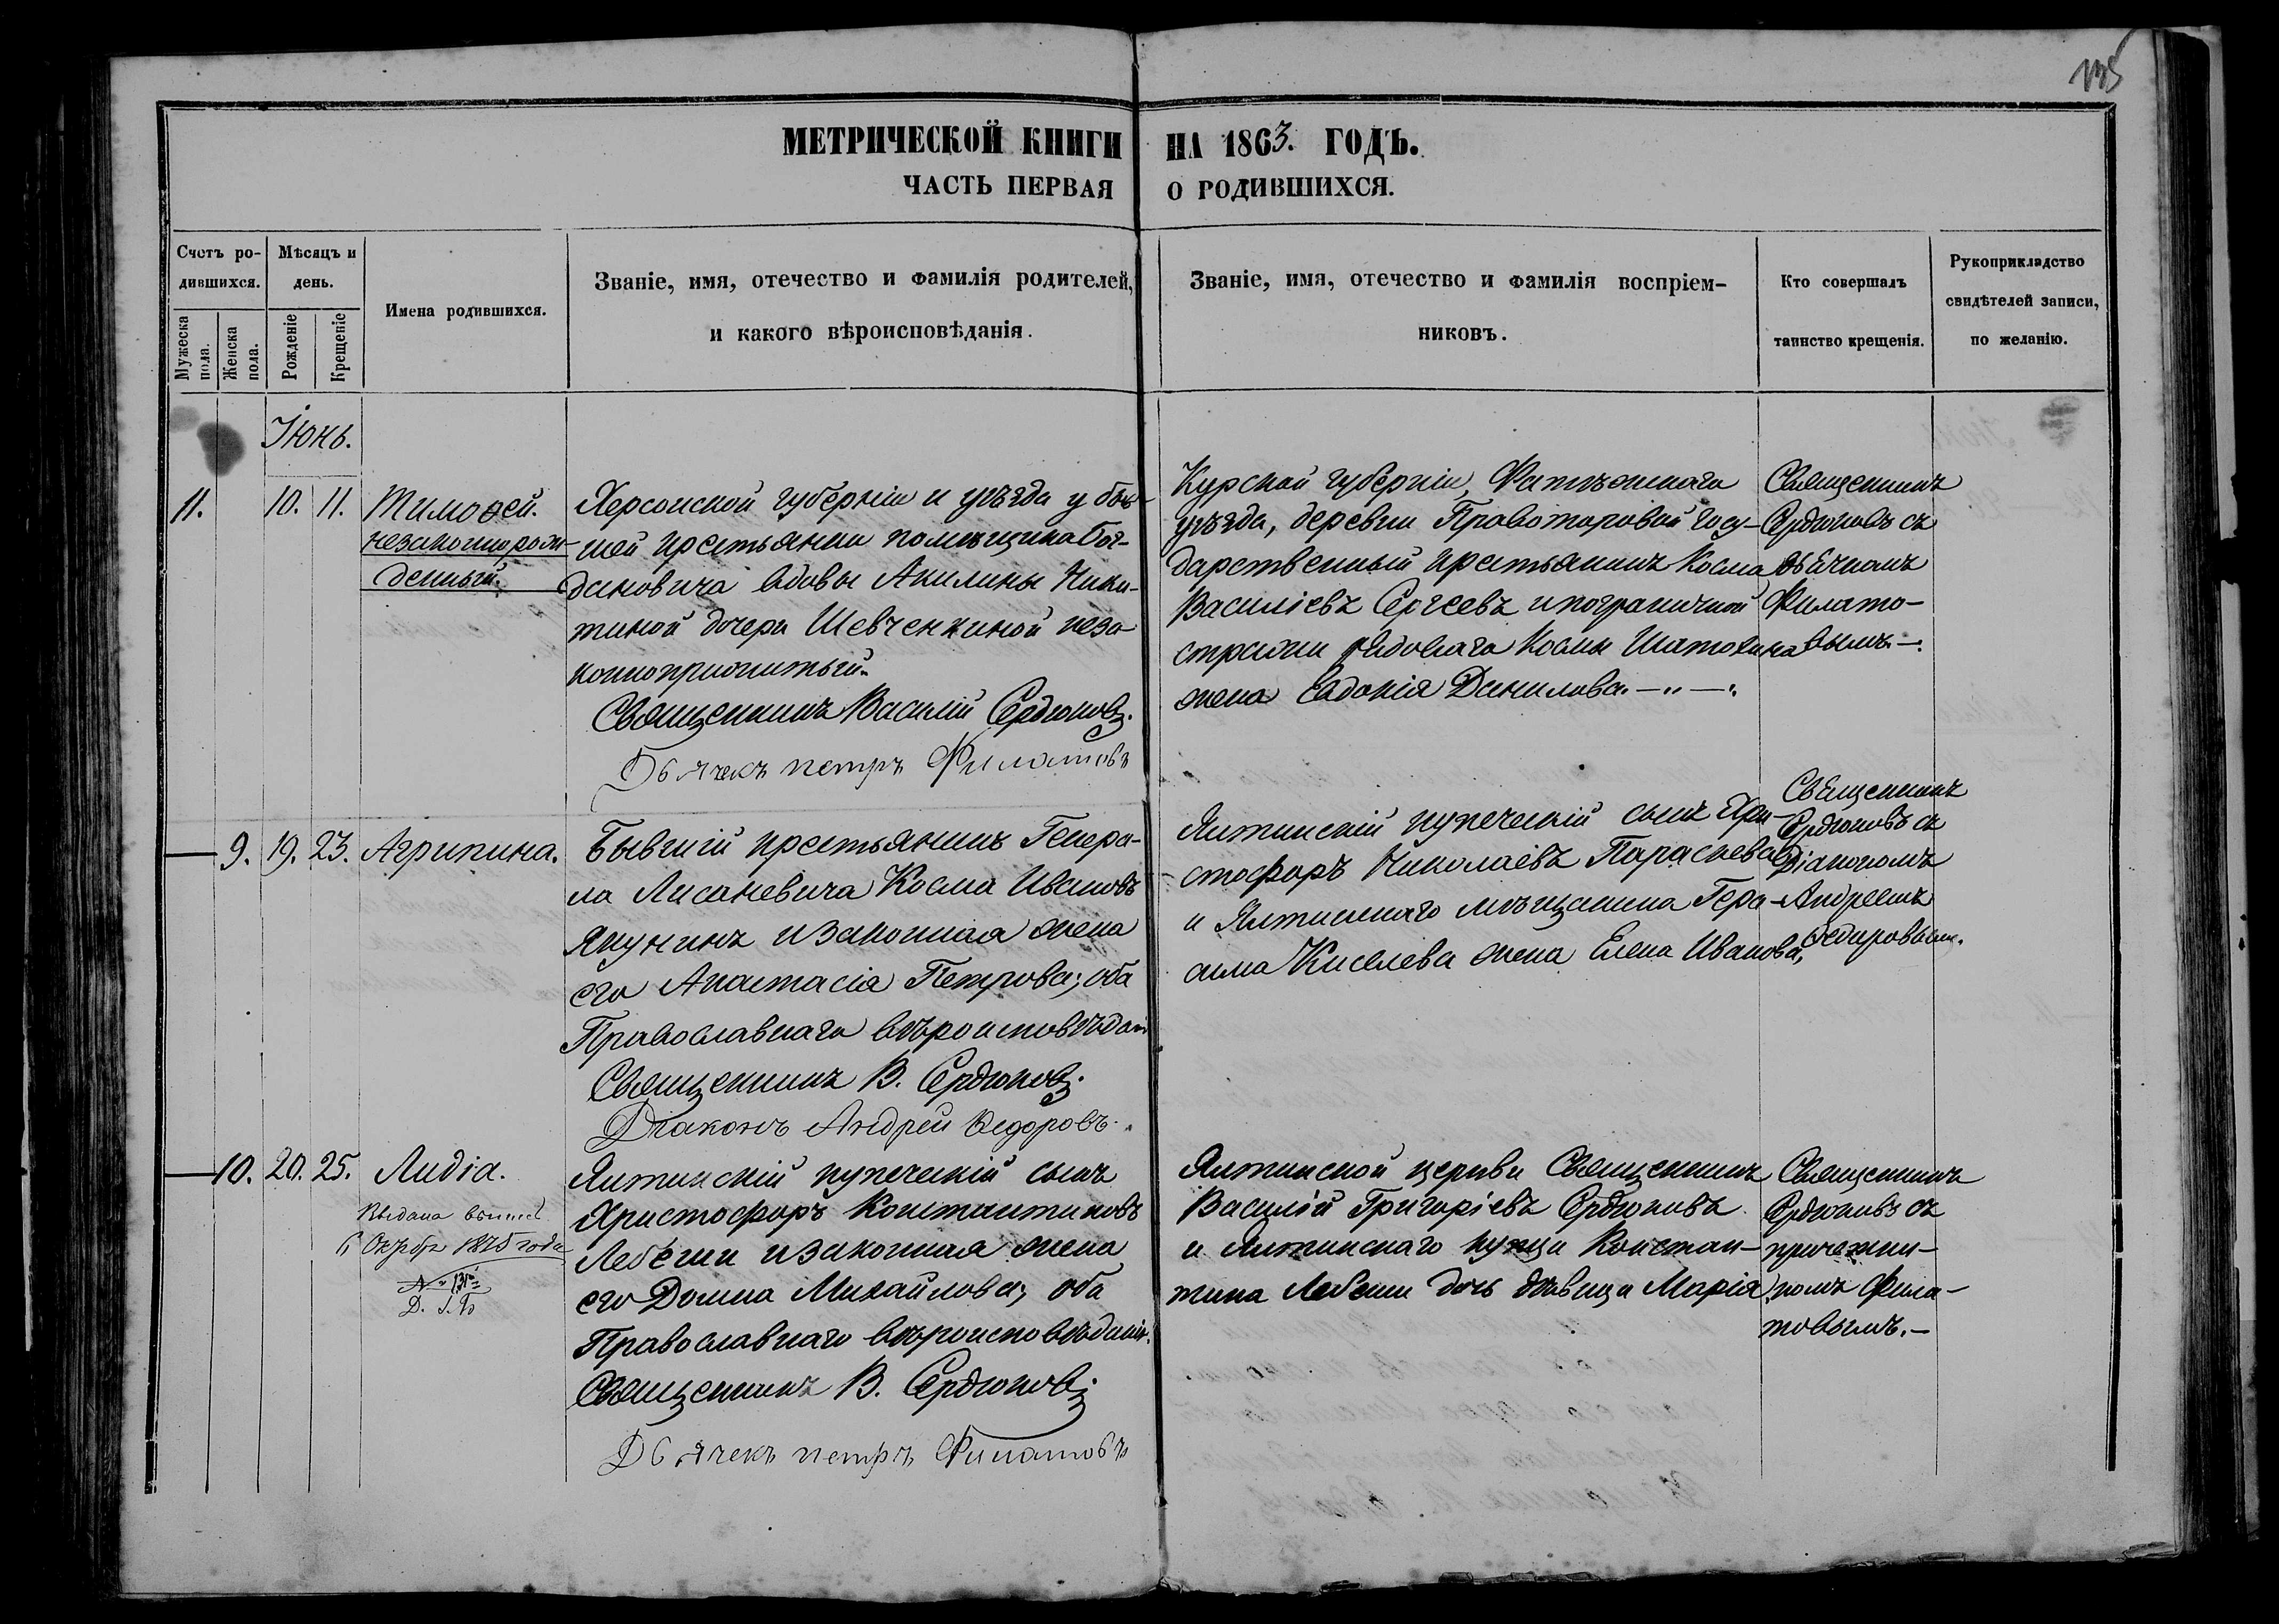 135
МЕТРИЧЕСКОЙ КНИГИ НА 1863. ГОДЪ.
ЧАСТЬ ПЕРВАЯ О РОДИВШИХСЯ.
Счетъ ро-
дившихся.
Мужеска
пола.
Женска
пола.
Мѣсяцъ и
день.
Рожденіе
Крещеніе
Имена родившихся.
Званіе, имя, отечество и фамилія родителей,
и какого вѣроисповѣданія.
Званіе, имя, отечество и фамилія воспріем-
никовъ.
Кто совершалъ
таинство крещенія.
Рукоприкладство
свидѣтелей записи,
по желанію.
Іюнь.
11. 10. 11. Тимоѳей.
незаконнорож-
денный.
Херсонской губерніи и уѣзда у быв-
шей крестьянки помѣщика Бог-
дановича вдовы Акилины Ники-
тиной дочери Шевченкиной неза-
конноприжитый.
Священникъ Василій Сердюковъ.
Дьячекъ петръ Филатовъ
Курской губерніи, Фатѣжскаго
уѣзда, деревни Правоторовой госу-
дарственный крестьянинъ Косма
Василіевъ Сергеевъ и пограничной
стражи рядоваго Космы Шатохина
жена Евдокія Данилова.
Священникъ
Сердюковъ съ
дьячкомъ
Филато-
вымъ.
9. 19. 23. Агрипина.
Бывшій крестьянинъ Генера-
ла Лисаневича Косма Ивановъ
Якунинъ и законная жена
его Анастасія Петрова; оба
Православнаго вѣроисповѣдані
Священникъ В. Сердюковъ.
Диаконъ Андрей Ѳедоровъ.
Ялтинскій купеческій сынъ Хри-
стофоръ Николаевъ Параскева
и Ялтинскаго мѣщанина Гера-
сима Киселева жена Елена Иванова,
Священникъ
Сердюковъ съ
Діакономъ
Андреемъ
Ѳедоровым.
10. 20. 25. Лидіа.
Выдана выпись
6 Октябр 1875 года
№ 131
Ялтинскій купеческій сынъ
Христофоръ Константиновъ
Лебеши и законная жена
его Домна Михайлова; оба
Православнаго вѣроисповѣданія.
Священникъ В. Сердюковъ
Дьячекъ петръ Филатовъ
Ялтинской церкви Священникъ
Василій Григоріевъ Сердюковъ
и Ялтинскаго купца Констан-
тина Лебеши дочь дѣвица Марія.
Священникъ
Сердюковъ съ
причетни-
комъ Фила-
товымъ.